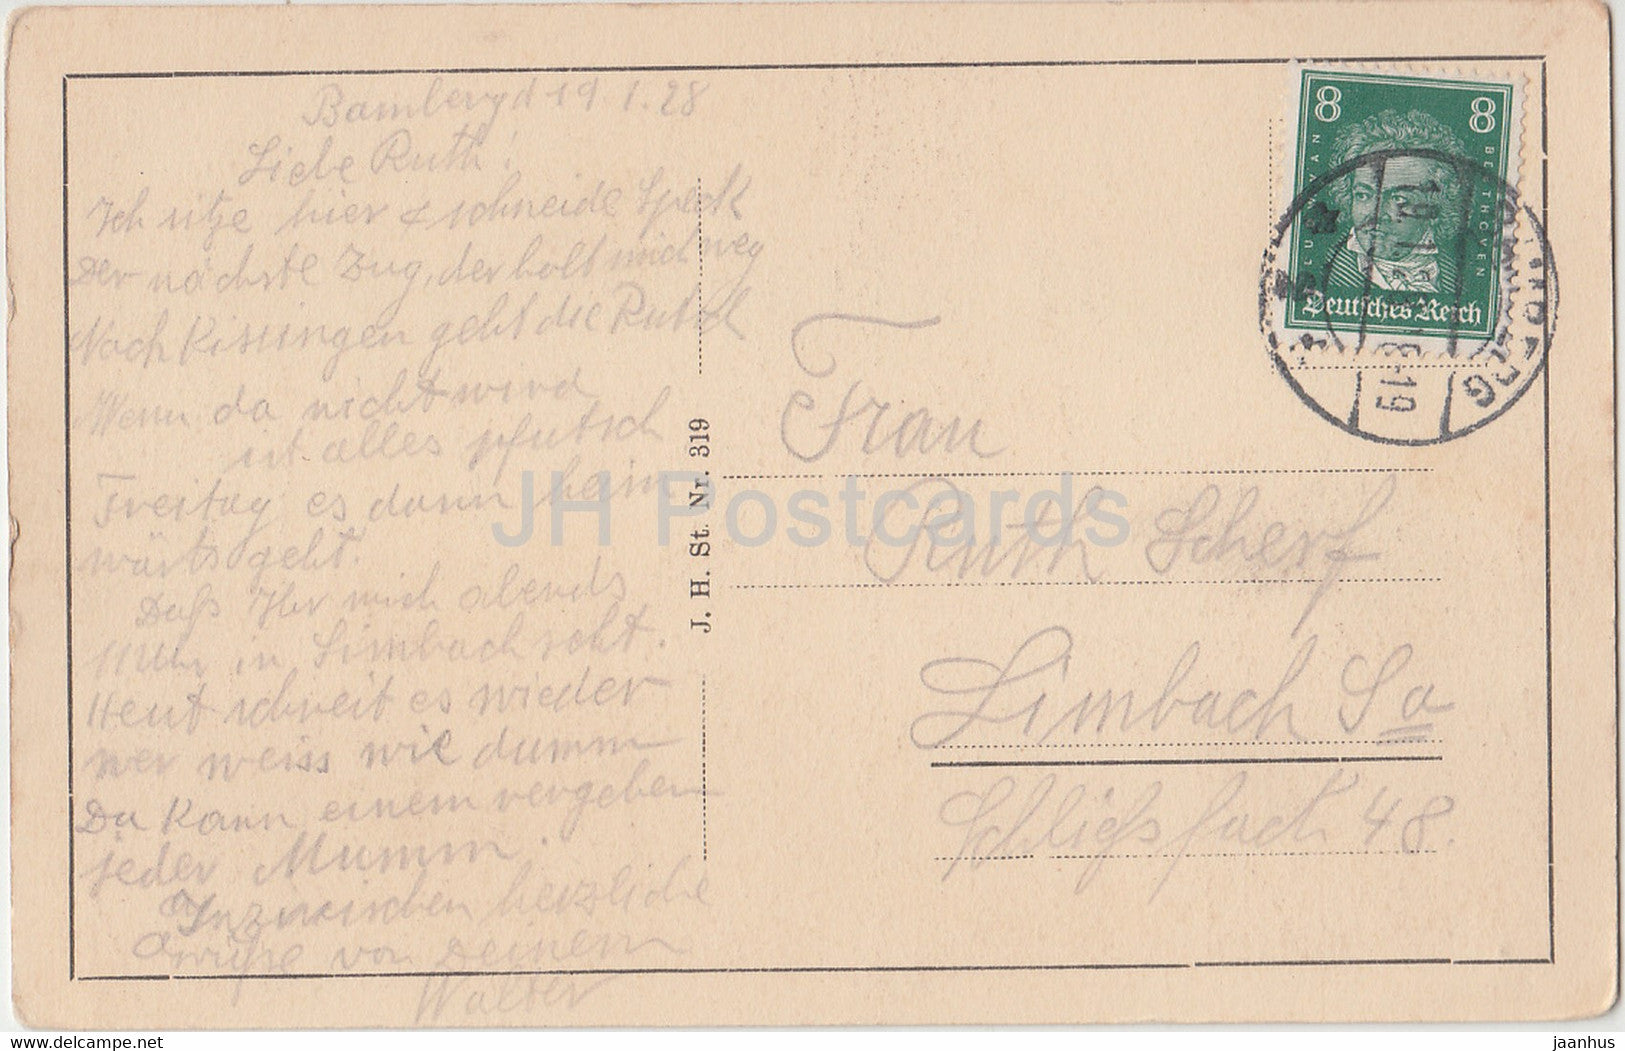 Bamberg d 19 1.28
Liebe Ruth!
Ich sitze hier & schneide Speck
Der nächste Zug, der holt mich weg
Nach Kissingen geht die Rutsch
Wenn da nicht wird
ist alles pfutsch
Freitag es dann heim
wärts geht.
Daß Ihr mich abends
11 Uhr in Limbach seht.
Heut schneit es wieder
wer weiss wie dumm
Da kann einem vergehen
jeder Mumm.
Inzwischen herzliche
Grüße von Deinem
Walter
J. H. St. Nr. 319
8 8
LUDW. VAN BEETHOVEN
Deutsches Reich
BAMBERG
19.1.28 6-19
Frau
Ruth Scherf
Limbach Sa
Schließfach 48.
JH Postcards
delcampe.net
jaanhus